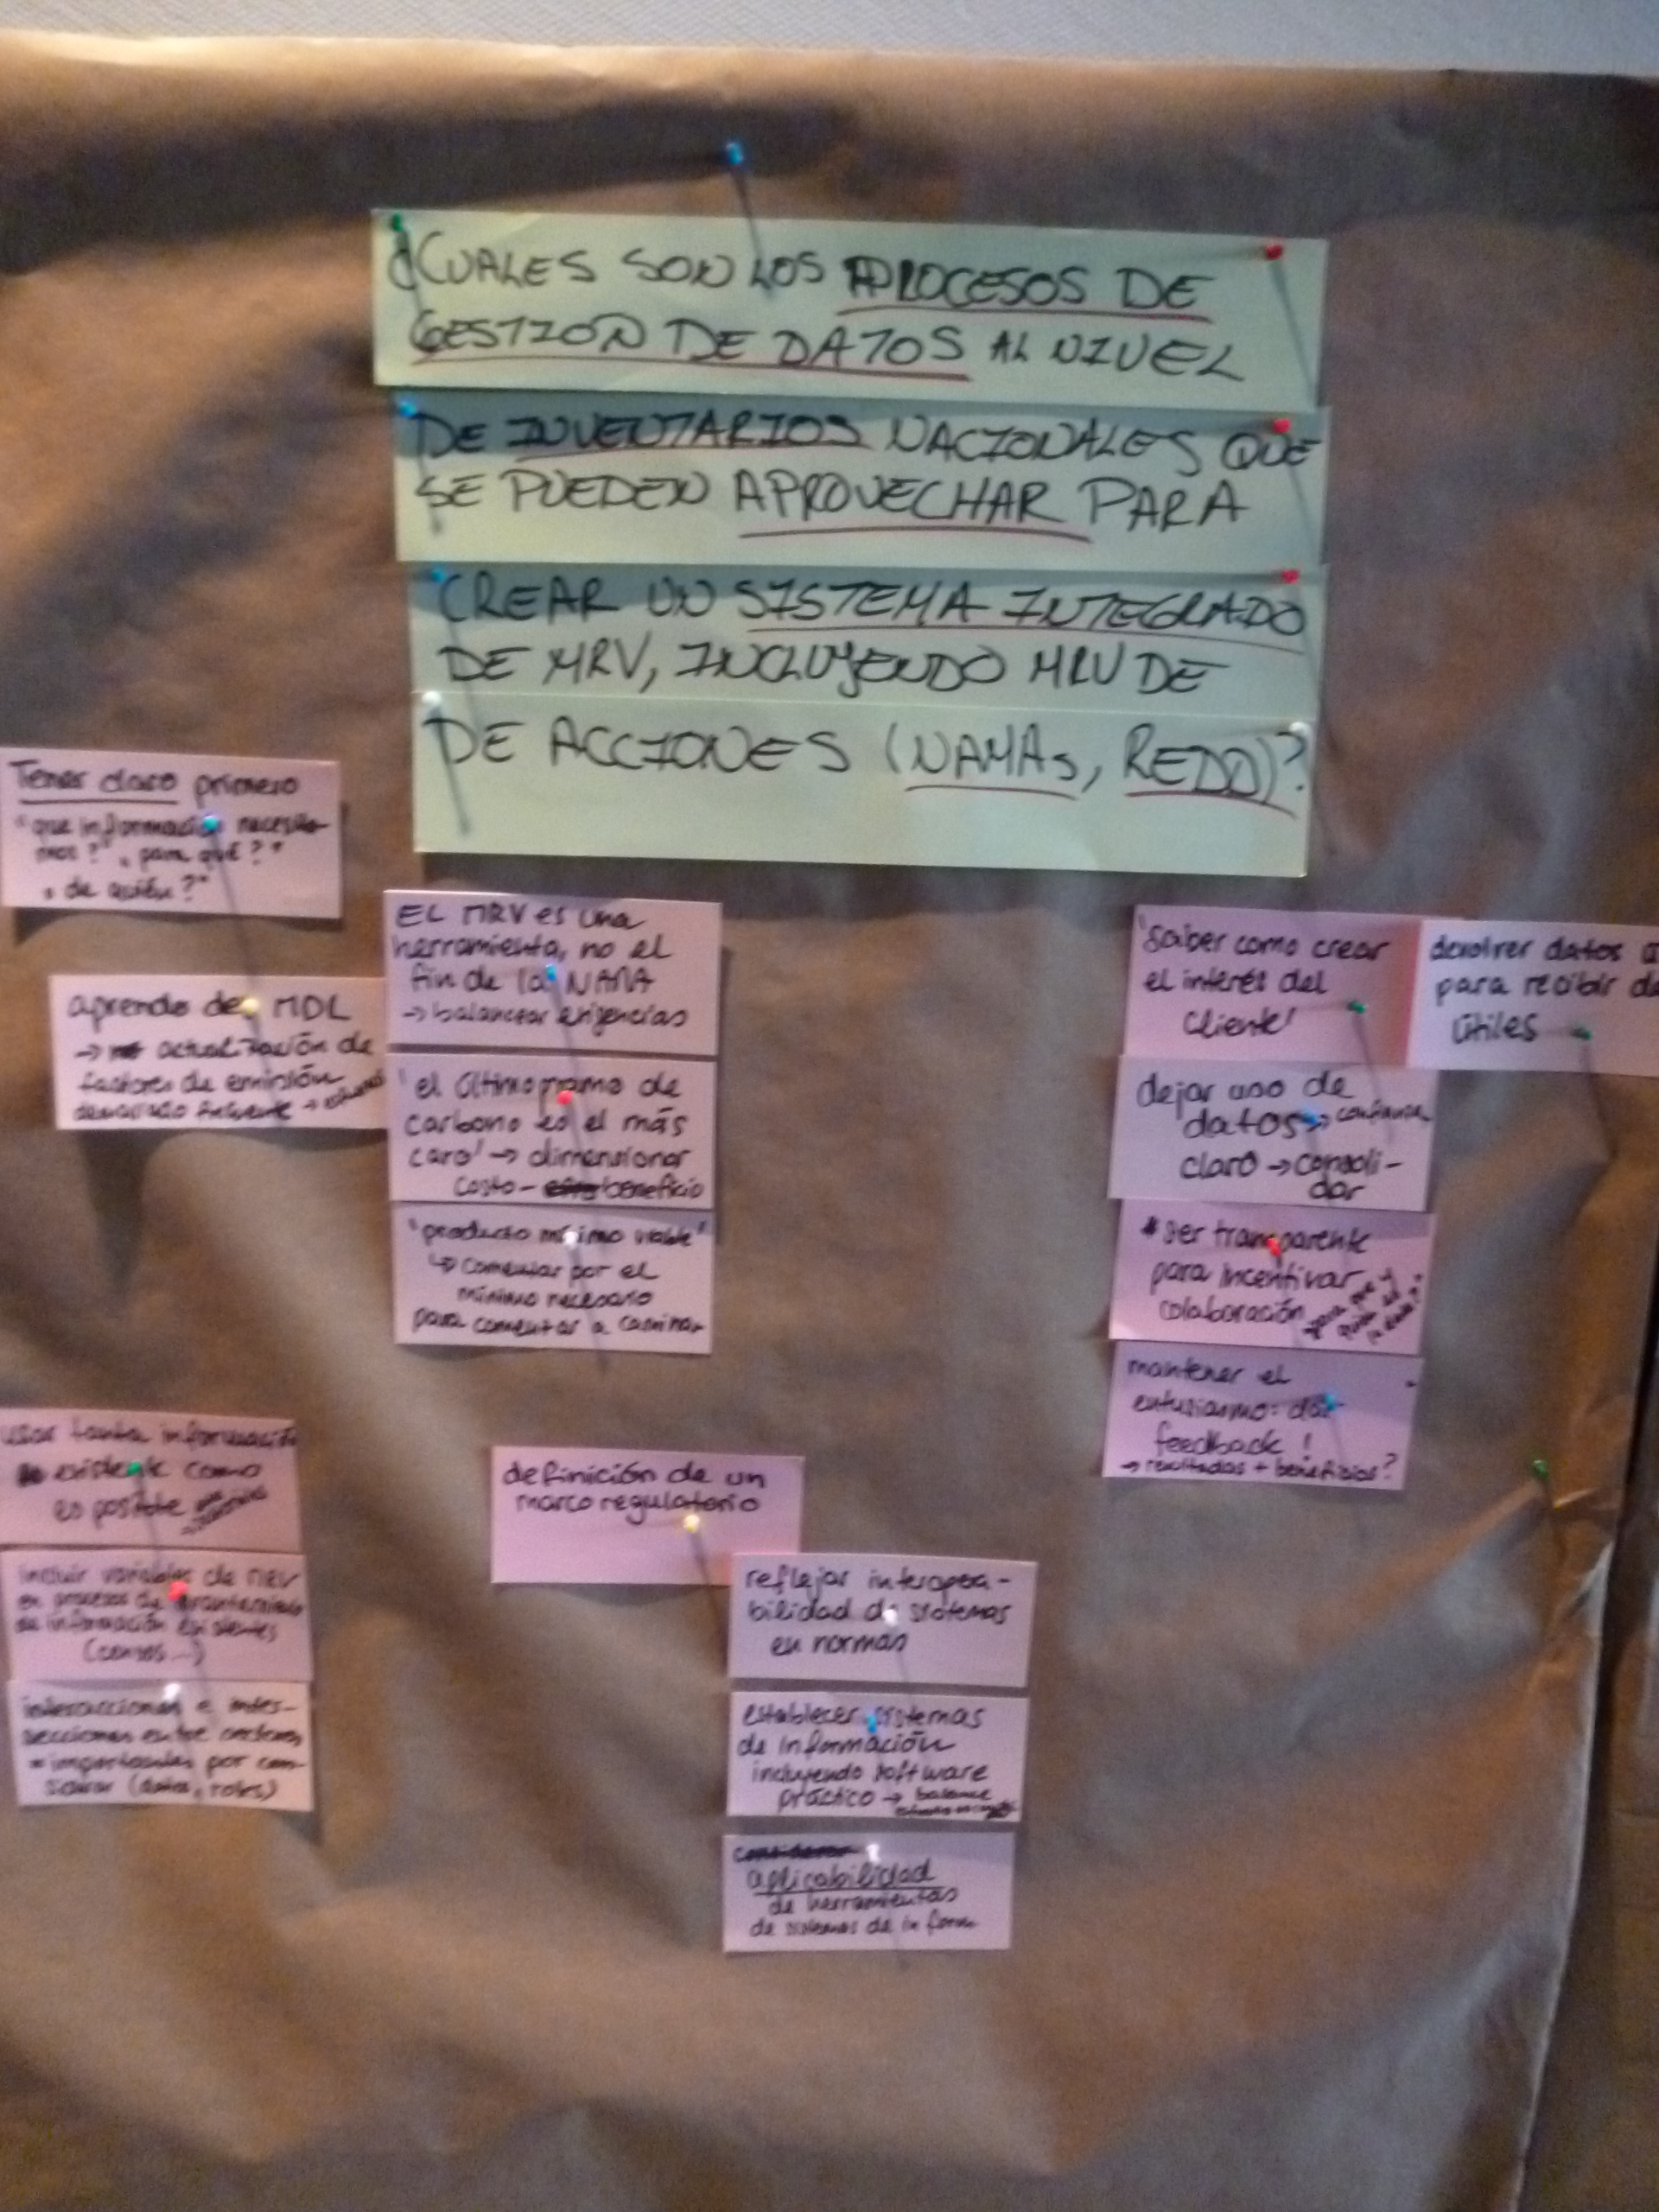 ¿CUALES SON LOS PROCESOS DE
GESTION DE DATOS AL NIVEL
DE INVENTARIOS NACIONALES QUE
SE PUEDEN APROVECHAR PARA
CREAR UN SISTEMA INTEGRADO
DE MRV, INCLUYENDO MRV DE
DE ACCIONES (NAMAs, REDD)?
Tener claro primero
"que información necesita-
mos?" "para qué?"
"de quién?"
aprendo de MDL
→ actualización de
factores de emisión
demasiado frecuente →
EL MRV es una
herramienta, no el
fin de la NAMA
→ balancear exigencias
'el último gramo de
carbono es el más
caro' → dimensionar
costo - beneficio
"producto mínimo viable"
↳ comenzar por el
mínimo necesario
para comenzar a caminar
'Saber como crear
el interés del
cliente'
devolver datos
para recibir
útiles
dejar uso de
datos → confianza
claro → consoli-
dar
* ser transparente
para incentivar
colaboración para que y
mantener el
entusiasmo: dar
feedback!
→ resultados + beneficios?
usar tanta información
existente como
es posible
incluir variables de MRV
en procesos de levantamiento
de información existentes
(censos...)
interacciones e inter-
secciones entre sectores
= importantes por con-
siderar (datos, roles)
definición de un
marco regulatorio
reflejar interopera-
bilidad de sistemas
en normas
establecer sistemas
de información
incluyendo software
práctico → balance
considerar
aplicabilidad
de herramientas
de sistemas de inform.